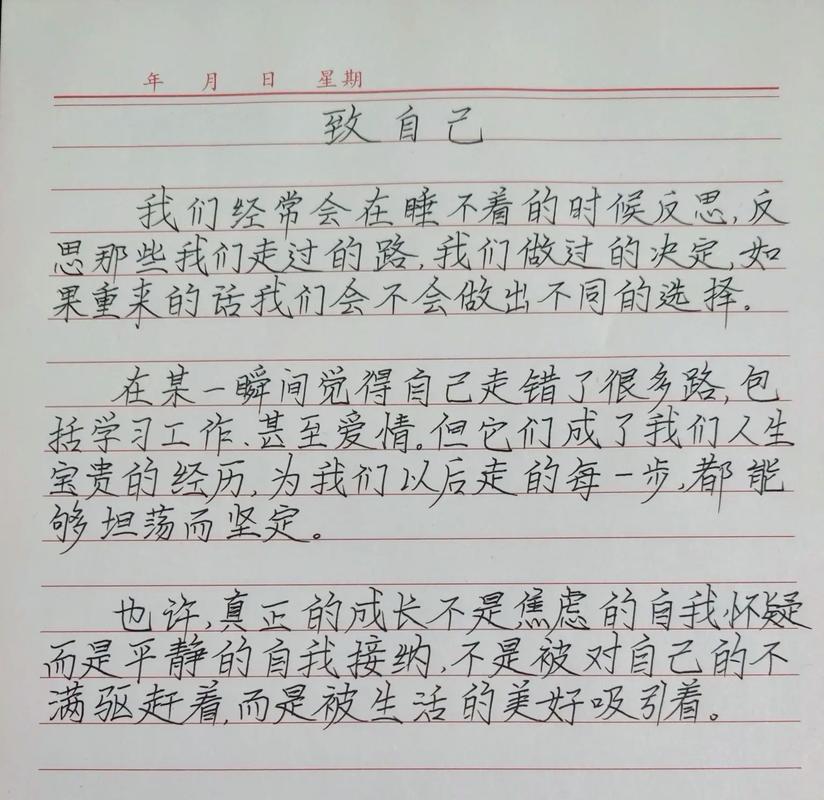 年 月 日 星期
致自己
我们经常会在睡不着的时候反思,反
思那些我们走过的路,我们做过的决定,如
果重来的话我们会不会做出不同的选择。
在某一瞬间觉得自己走错了很多路,包
括学习工作、甚至爱情。但它们成了我们人生
宝贵的经历,为我们以后走的每一步,都能
够坦荡而坚定。
也许,真正的成长不是焦虑的自我怀疑
而是平静的自我接纳,不是被对自己的不
满驱赶着,而是被生活的美好吸引着。